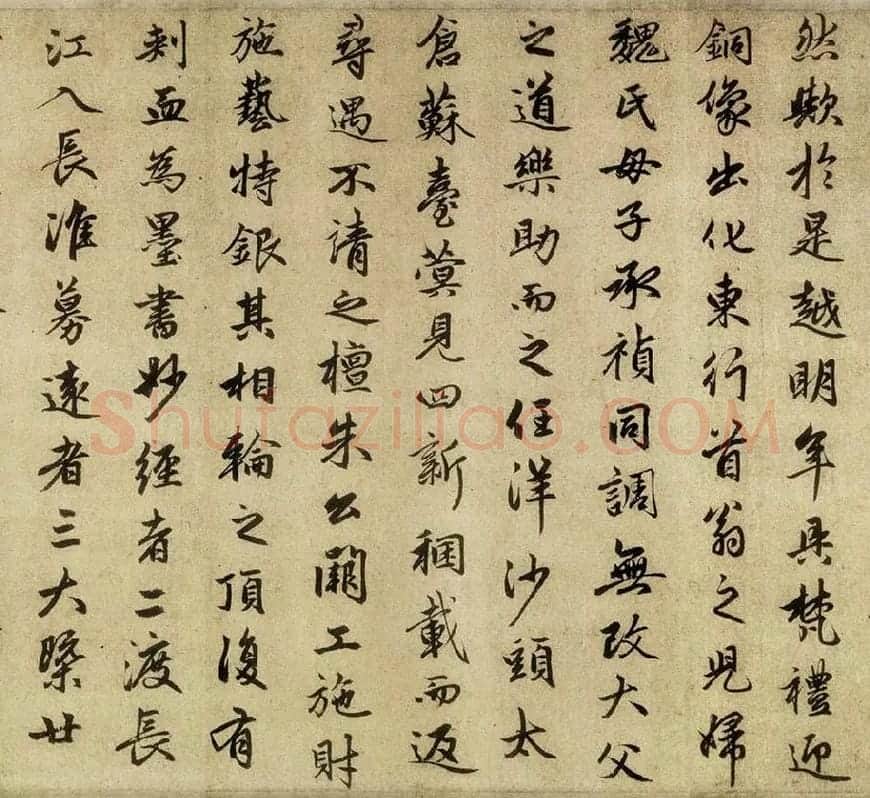 然歟於是越明年具梵禮迎
銅像出化東行首翁之兒婦
魏氏母子承禎同調無改大父
之道樂助而之任洋沙頭太
倉蘇臺蓂見四新稇載而返
尋遇不請之檀朱公闢工施財
施藝特銀其相輪之頂復有
刺血為墨書妙經者二渡長
江入長淮募遠者三大槩廿
shufaziliao.COM